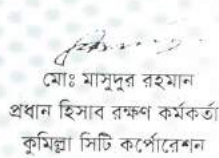 মোঃ মাসুদুর রহমান
প্রধান হিসাব রক্ষণ কর্মকর্তা
কুমিল্লা সিটি কর্পোরেশন